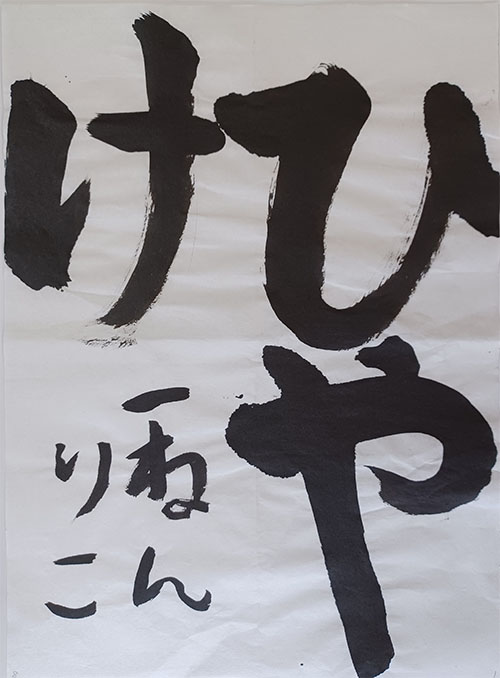 ひや
け
一ねん
りこ